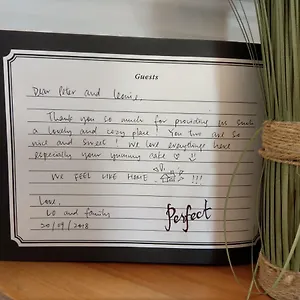 Guests
Dear Peter and Leonie,
Thank you so much for providing us such
a lovely and cozy place! You two are so
nice and sweet! We love everythings here
especially your yummy cake
WE FEEL LIKE HOME !!!
Love,
LO and family
20/09/2018
Perfect